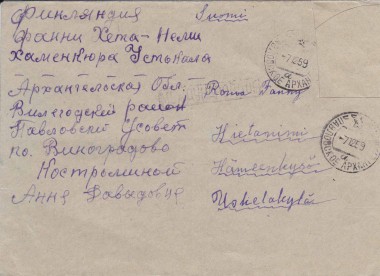 Финляндия
Suomi
Фанни Хета-Нелли
Хаменкюра Успыкалы
Архангельская Обл.
Вилегодский район
Павловский Усовет
по. Виноградово
Костроминой
Анна Давыдовна
Fanny
Hietaniemi
Hämeenkyrö
Uskelakylä
-7 12 59
-7 12 59